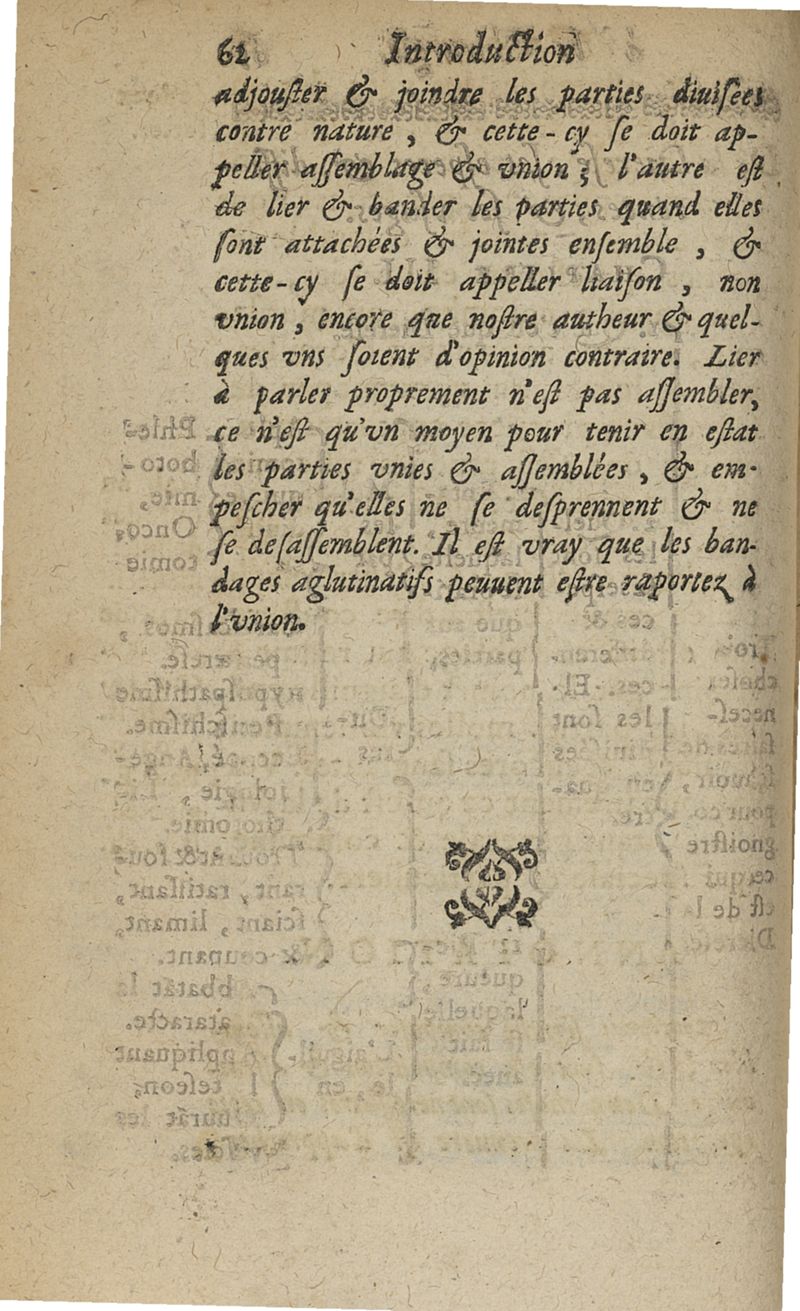 62 Introduction
adjouſter & joindre les parties diuiſées
contre nature, & cette-cy ſe doit ap-
peller aſſemblage & vnion; l'autre eſt
de lier & bander les parties quand elles
ſont attachées & jointes enſemble, &
cette-cy ſe doit appeller liaiſon, non
vnion, encore que noſtre autheur & quel-
ques vns ſoient d'opinion contraire. Lier
à parler proprement n'eſt pas aſſembler,
ce n'eſt qu'vn moyen pour tenir en eſtat
les parties vnies & aſſemblées, & em-
peſcher qu'elles ne ſe deſprennent & ne
ſe deſaſſemblent. Il eſt vray que les ban-
dages aglutinatifs peuuent eſtre raportez à
l'vnion.